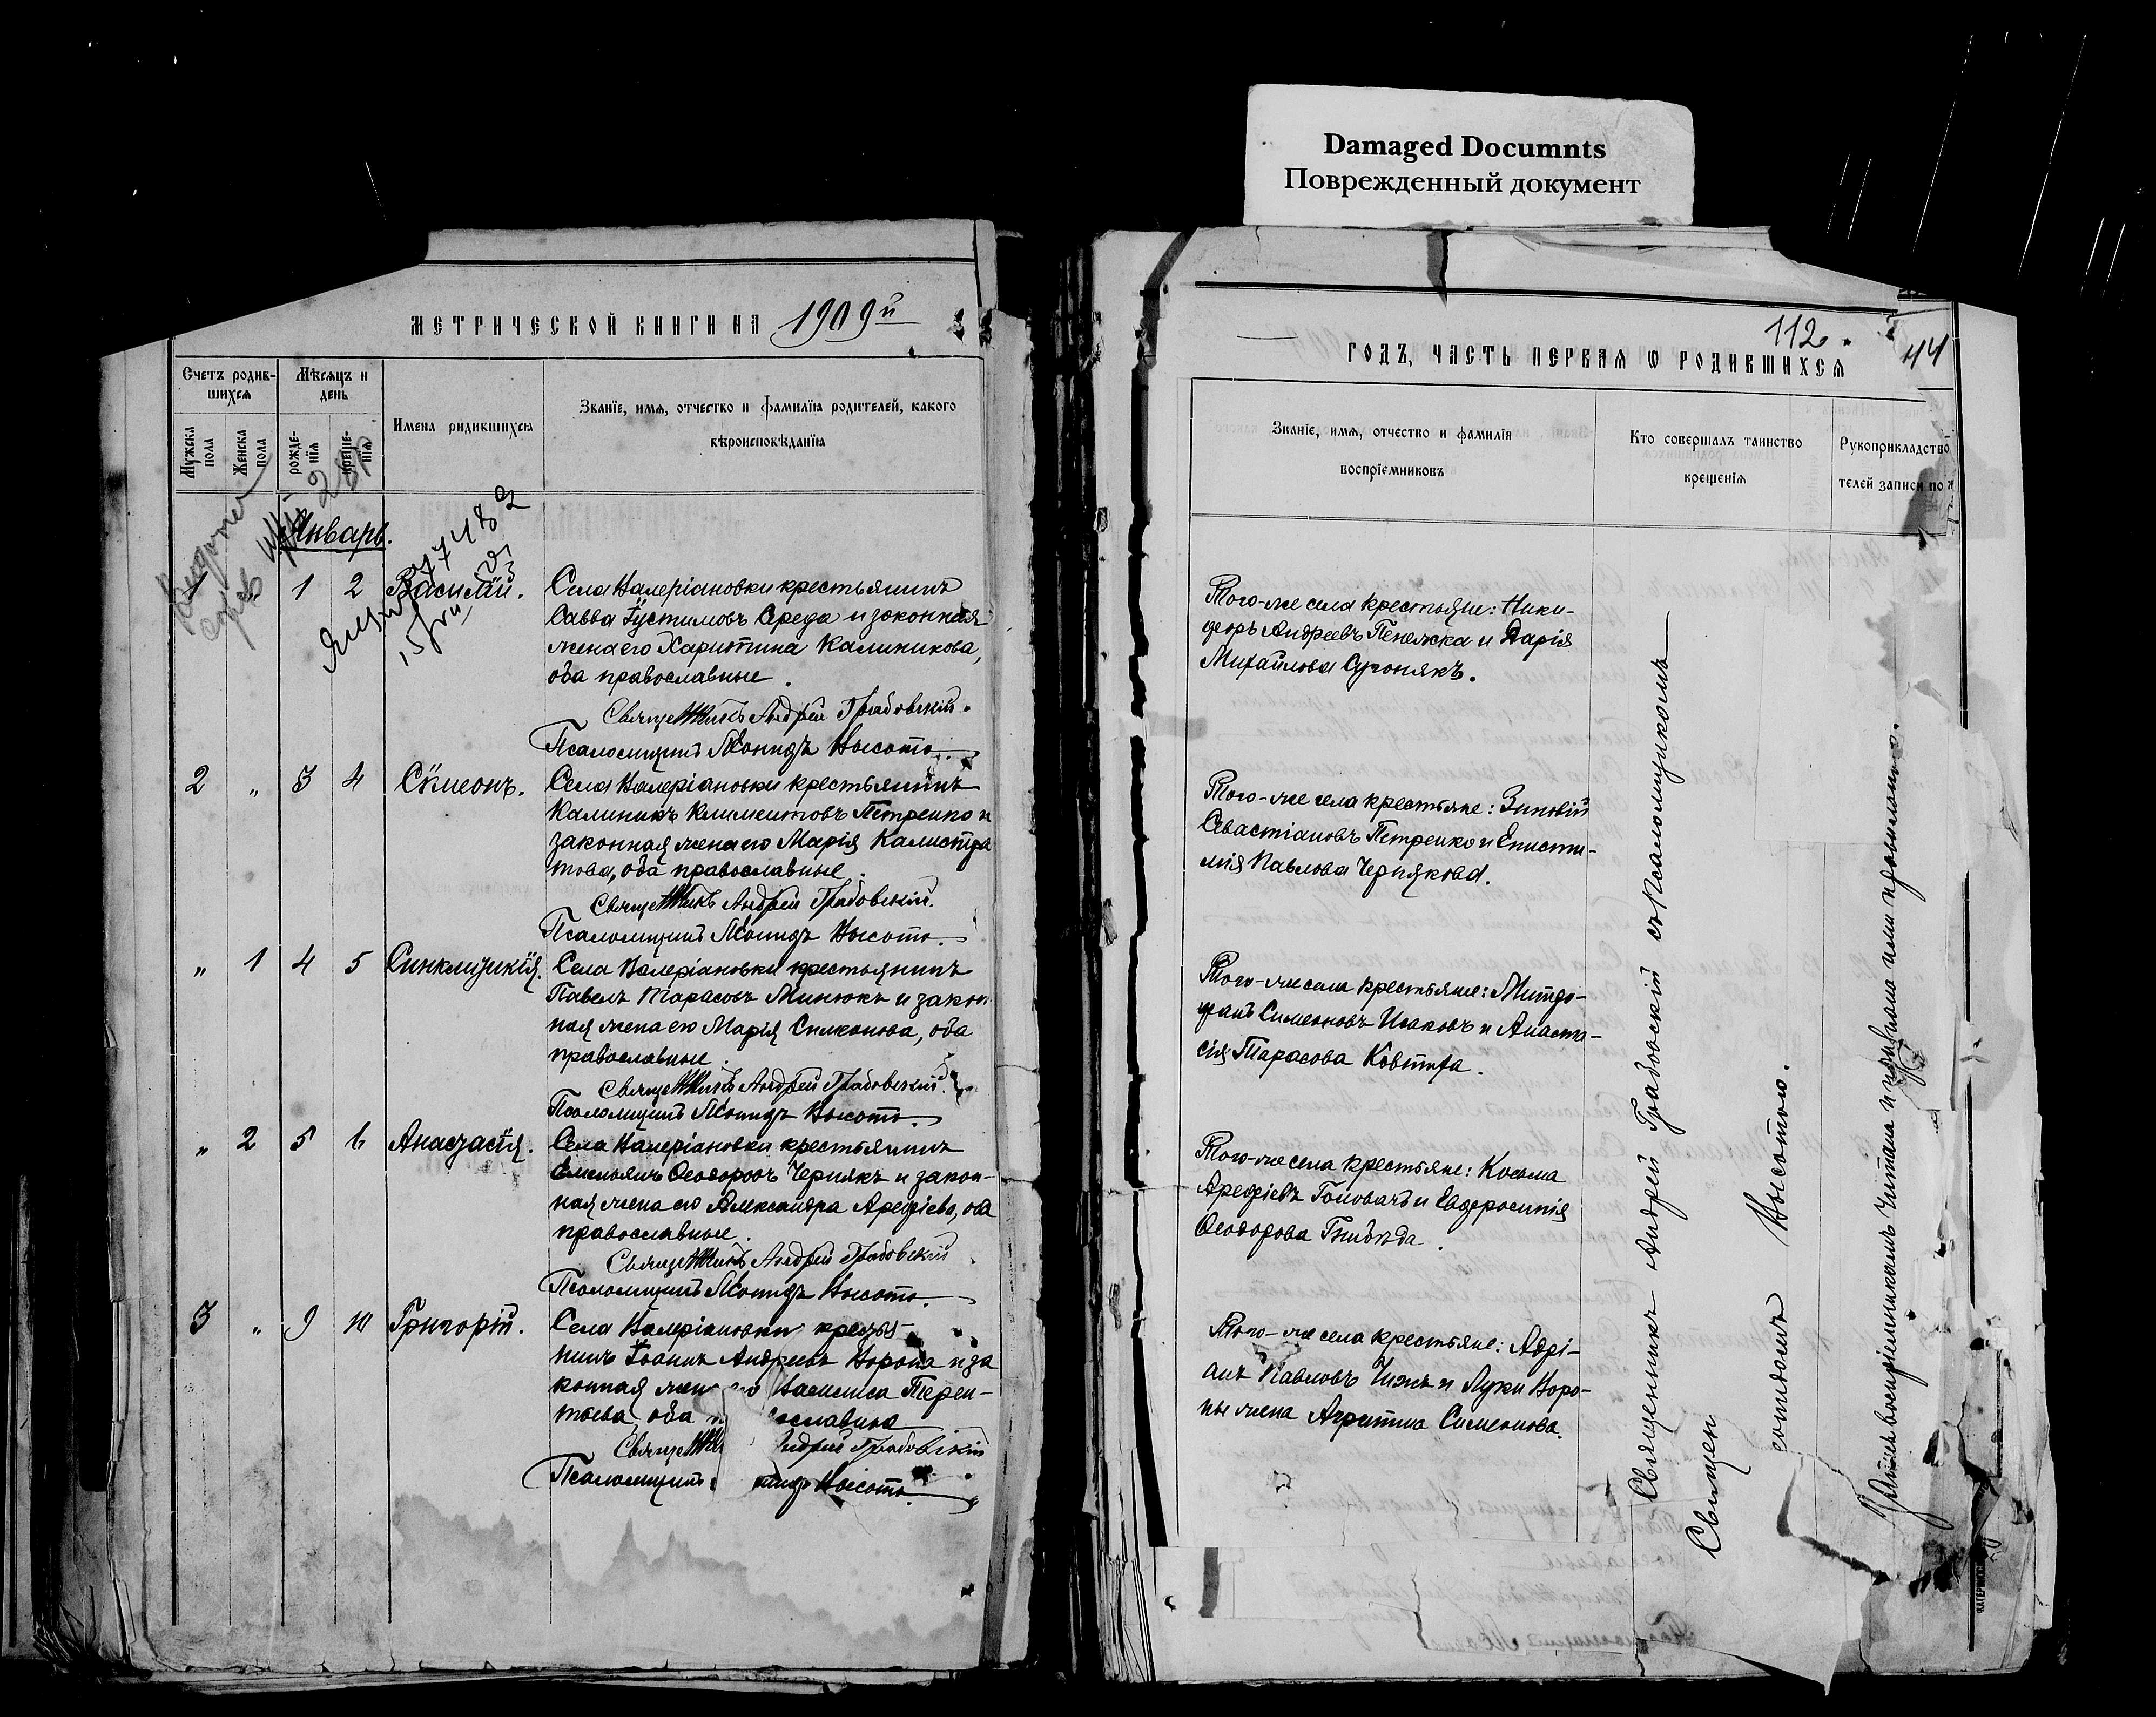 Damaged Documnts
Поврежденный документ
МЕТРИЧЕСКОЙ КНИГИ НА 1909й
Счетъ родив-
шихся
Мѣсяцъ и
день
Имена родившихся
Званїе, имя, отчество и фамилїя родителей, какого
вѣроисповѣданїя
Мужска
пола
Женска
пола
рожде-
нїя
креще-
нїя
Январь.
1 2 Василій.
Села Валеріановки крестьянинъ
Савва Іустимовъ Середа и законная
жена его Харитина Калиникова,
оба православные.
Священникъ Андрей Грабовскій.
Псаломщикъ Леонидъ Высота.
2 " 3 4 Сѵмеонъ.
Села Валеріановки крестьянинъ
Калиникъ Климентовъ Петренко и
законная жена его Марія Калистра
това, оба православные.
Священникъ Андрей Грабовскій.
Псаломщикъ Леонидъ Высота.
" 1 4 5 Синклитикія.
Села Валеріановки крестьянинъ
Павелъ Тарасовъ Минюкъ и закон
ная жена его Марія Спиконова, оба
православные.
Священникъ Андрей Грабовскій
Псаломщикъ Леонидъ Высота.
" 2 5 6 Анастасія.
Села Валеріановки крестьянинъ
Емельянъ Ѳеодоровъ Чернякъ и закон-
ная жена его Александра Арефіева, оба
православные.
Священникъ Андрей Грабовскій
Псаломщикъ Леонидъ Высота.
3 " 9 10 Григорій.
Села Валеріановки
нинъ Іоаннъ Андреевъ Ворона и за
конная жена его Василиса Терен-
тьева, оба
Грабовскій
Псаломщикъ Высота.
112.
44
ГОДЪ, ЧАСТЬ ПЕРВАЯ Ѡ РОДИВШИХСЯ
Званїе, имя, отчество и фамилїя
воспрїемниковъ
Кто совершалъ таинство
крещенїя
Рукоприкладство
телей записи по
Того-же села крестьяне: Ники-
форъ Андреевъ Пенежка и Дарія
Михайлова Сугонякъ.
Того-же села крестьяне: Зиновій
Севастіановъ Петренко и Еписти-
мія Павлова Чернякова.
Того-же села крестьяне: Митро-
фанъ Симеоновъ Исаковъ и Анаста-
сія Тарасова Ковтиха.
Того-же села крестьяне: Косьма
Арефіевъ Головачъ и Евфросинія
Ѳеодорова Гнибѣда.
Того-же села крестьяне: Адрі-
анъ Павловъ Чижъ и Луки Воро-
ны жена Агрипина Симеонова.
Священникъ Андрей Грабовскій съ Псаломщикомъ
Высотою.